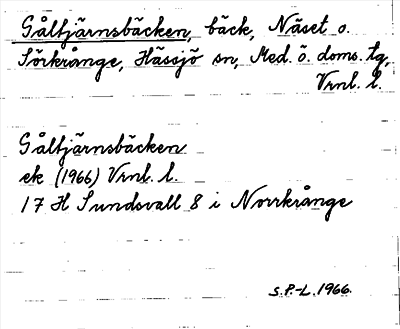 Gåltjärnsbäcken, bäck, Näset o.
Sörkrånge, Hässjö sn, Med. ö. doms. tg,
Vrnl. l.
Gåltjärnsbäcken
ek (1966) Vrnl. l.
17 H Sundsvall 8 i Norrkrånge
S.P.-L. 1966.